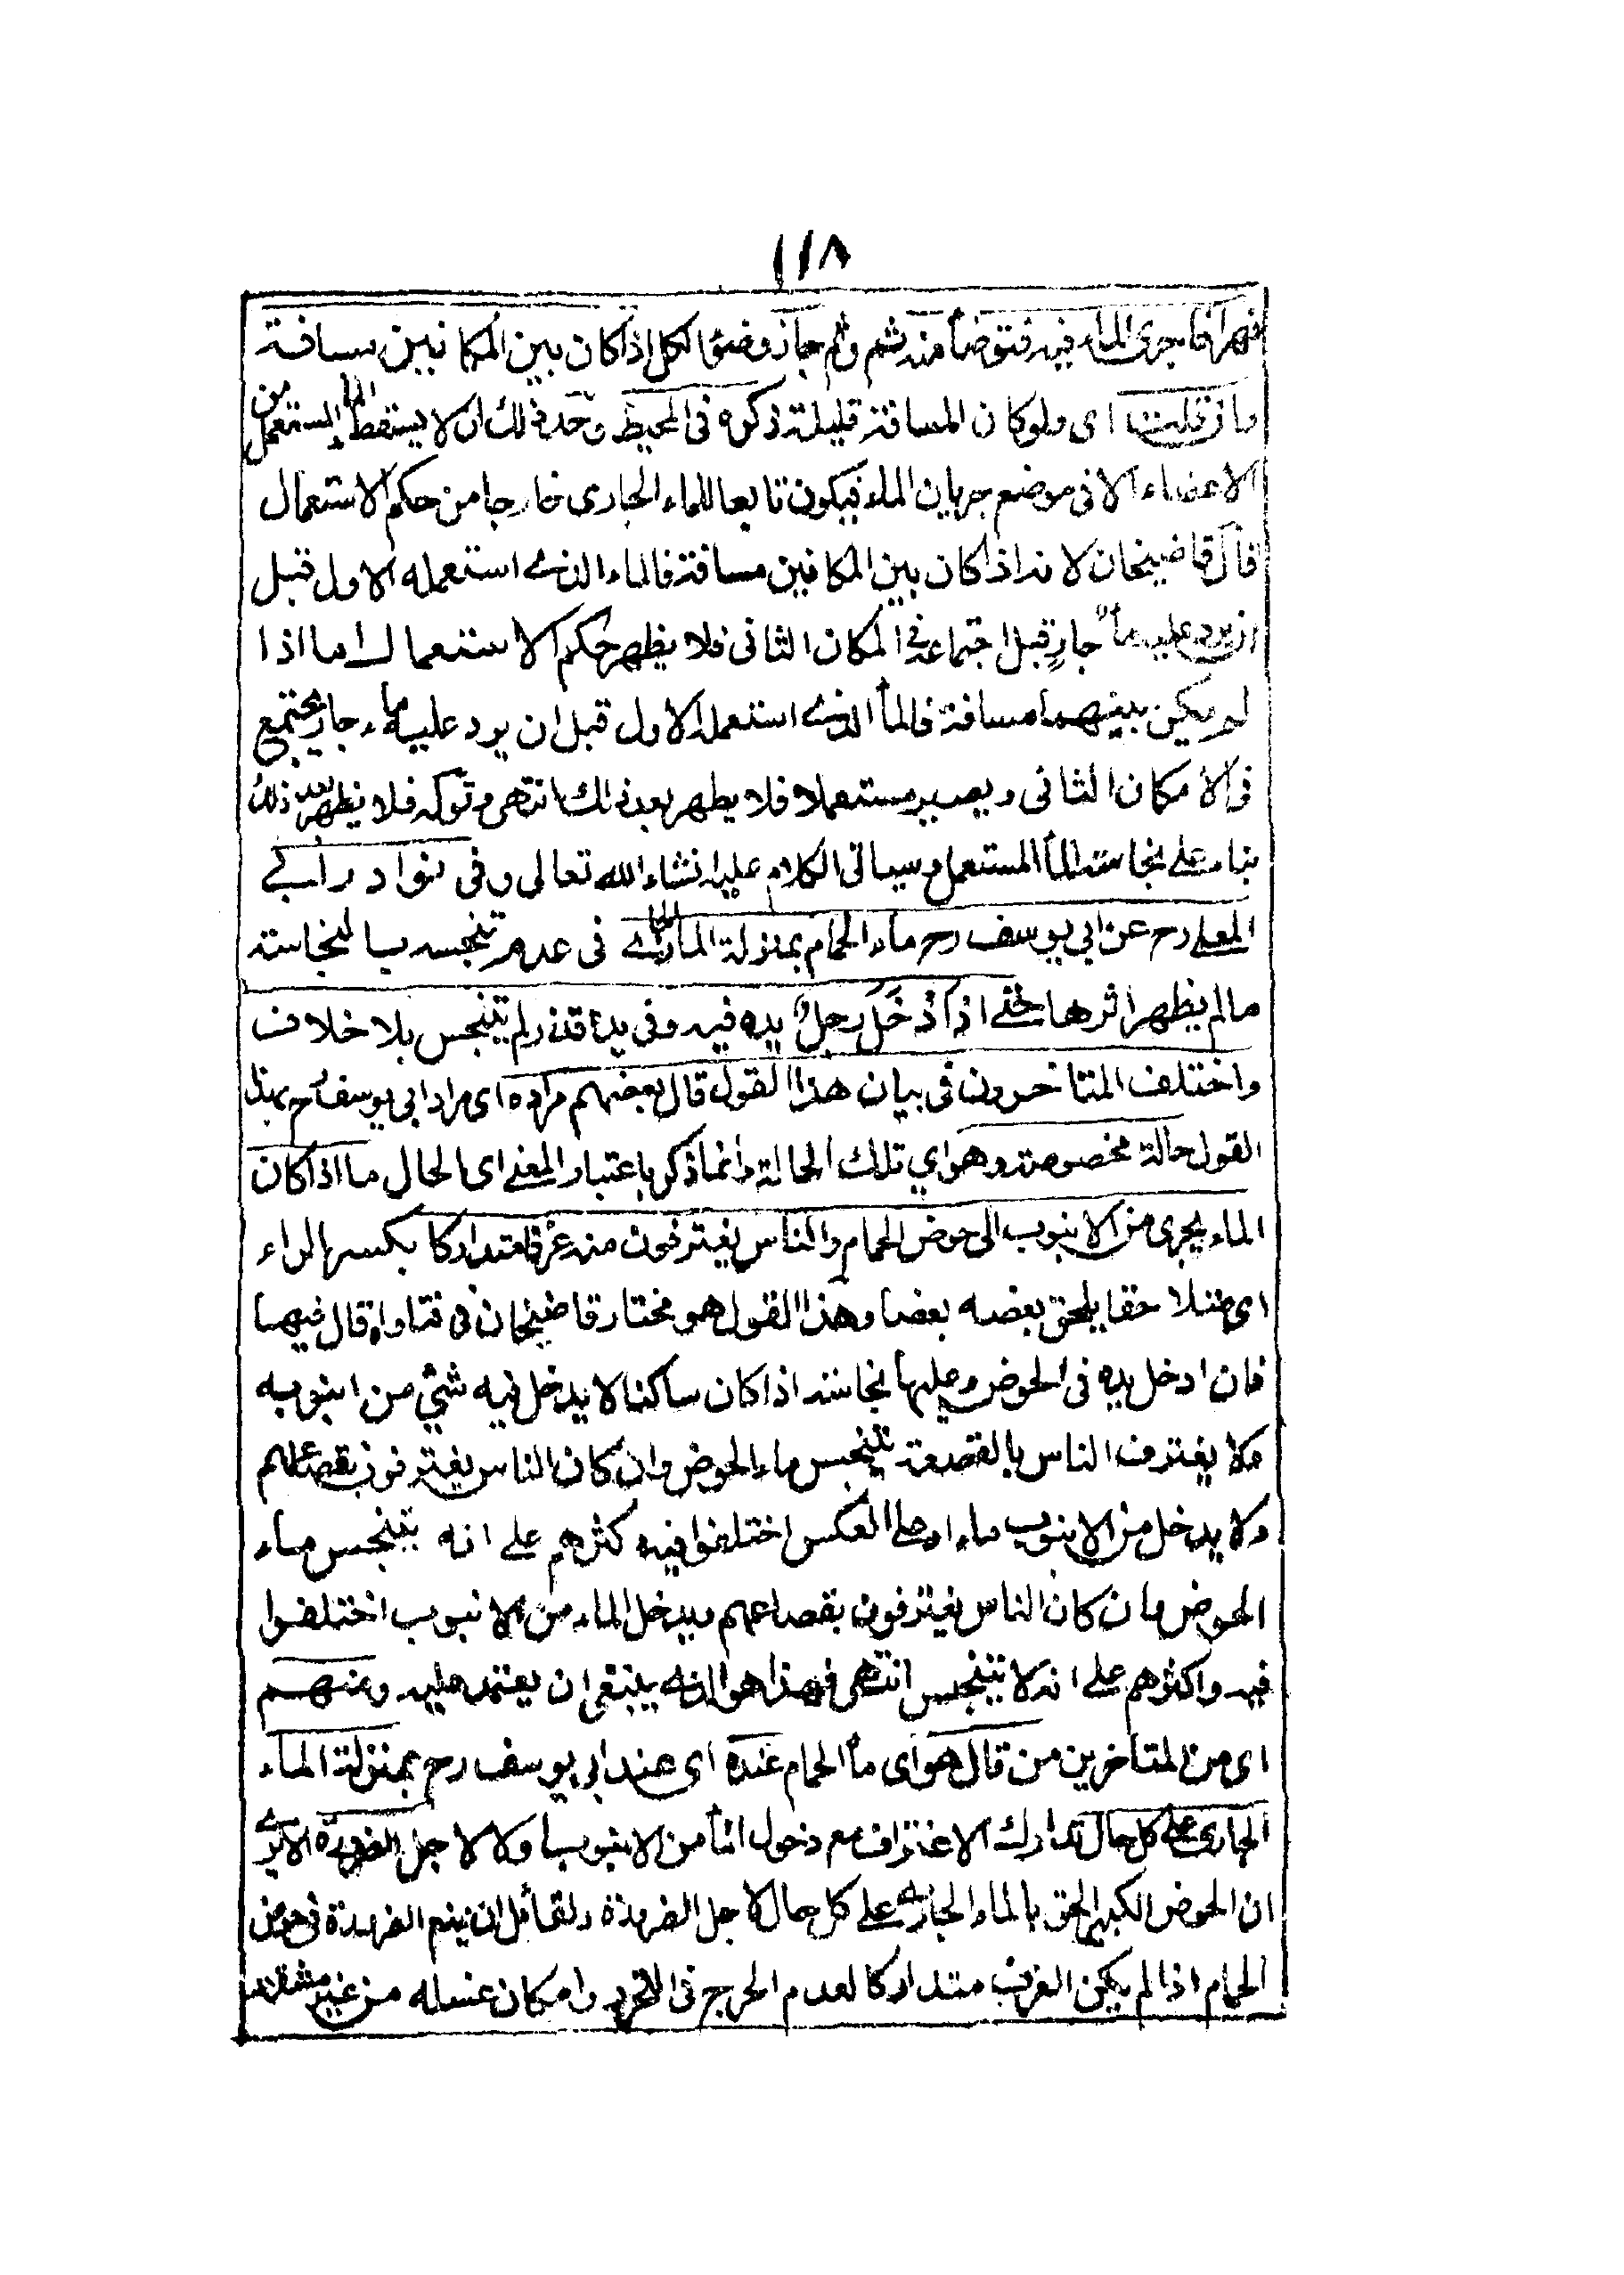 ١١٨
نهرا فاجرى الماء فيه فتوضأ منه ثم وثم جاز وضوء الكل اذا كان بين المكانين مسافة
وان قلت اى ولو كان المسافة قليلة ذكره فى المحيط وحد ذلك ان لا يسقط الماء المستعمل من
الاعضاء الا فى موضع جريان الماء فيكون تابعا للماء الجارى خارجا من حكم الاستعمال
قال قاضيخان لانه اذا كان بين المكانين مسافة فالماء الذى استعمله الاول قبل
ان يرد عليه ماء جارٍ قبل اجتماعه فى المكان الثانى فلا يظهر حكم الاستعمال اما اذا
لم يكن بينهما مسافة فالماء الذى استعمله الاول قبل ان يرد عليه ماء جار يجتمع
فى الامكان الثانى ويصير مستعملا فلا يطهر بعد ذلك انتهى وقوله فلا يطهر بعد ذلك
بناء على نجاسة الماء المستعمل وسياتى الكلام عليه انشاء الله تعالى وفى نوادر ابى
المعلى رح عن ابى يوسف رح ماء الحمام بمنزلة الماء الجارى فى عدم تنجسه بالنجاسة
مالم يظهر اثرها حتى اذا أَدْخَلَ رجلٌ يده فيه وفى يده قذر لم يتنجس بلا خلاف
واختلف المتاخرون فى بيان هذا القول قال بعضهم مراده اى مراد ابى يوسف رح بهذا
القول حالة مخصوصة وهو اي تلك الحالة وانما ذكر باعتبار المعنى اى الحال ما اذا كان
الماء يجرى من الانبوب الى حوض الحمام والناس يغترفون منه غرفا متداركا بكسر الراء
اى متلاحقا يلحق بعضه بعضا وهذا القول هو مختار قاضيخان فى فتاواه قال فيها
فان ادخل يده فى الحوض وعليها نجاسة اذا كان ساكنا لا يدخل فيه شئ من انبوبه
ولا يغترف الناس بالقصعة يتنجس ماء الحوض وان كان الناس يغترفون بقصاعهم
ولا يدخل من الانبوب ماء او على العكس اختلفوا فيه اكثرهم على انه يتنجس ماء
الحوض وان كان الناس يغترفون بقصاعهم ويدخل الماء من الانبوب اختلفوا
فيه واكثرهم على انه لا يتنجس انتهى فهذا هو الذى ينبغى ان يعتمد عليه ومنهم
اى من المتاخرين من قال هو اى ماء الحمام عنده اى عند ابى يوسف رح بمنزلة الماء
الجارى على كل حال تدارك الاغتراف مع دخول الماء من الانبوب او لا لاجل الضرورة الا يرى
ان الحوض الكبير الحق بالماء الجارى على كل حال لاجل الضرورة ولقائل ان يمنع الضرورة فى حوض
الحمام اذا لم يكن الغرف متداركا لعدم الحرج فى التحرز وامكان غسله من غير مشقة